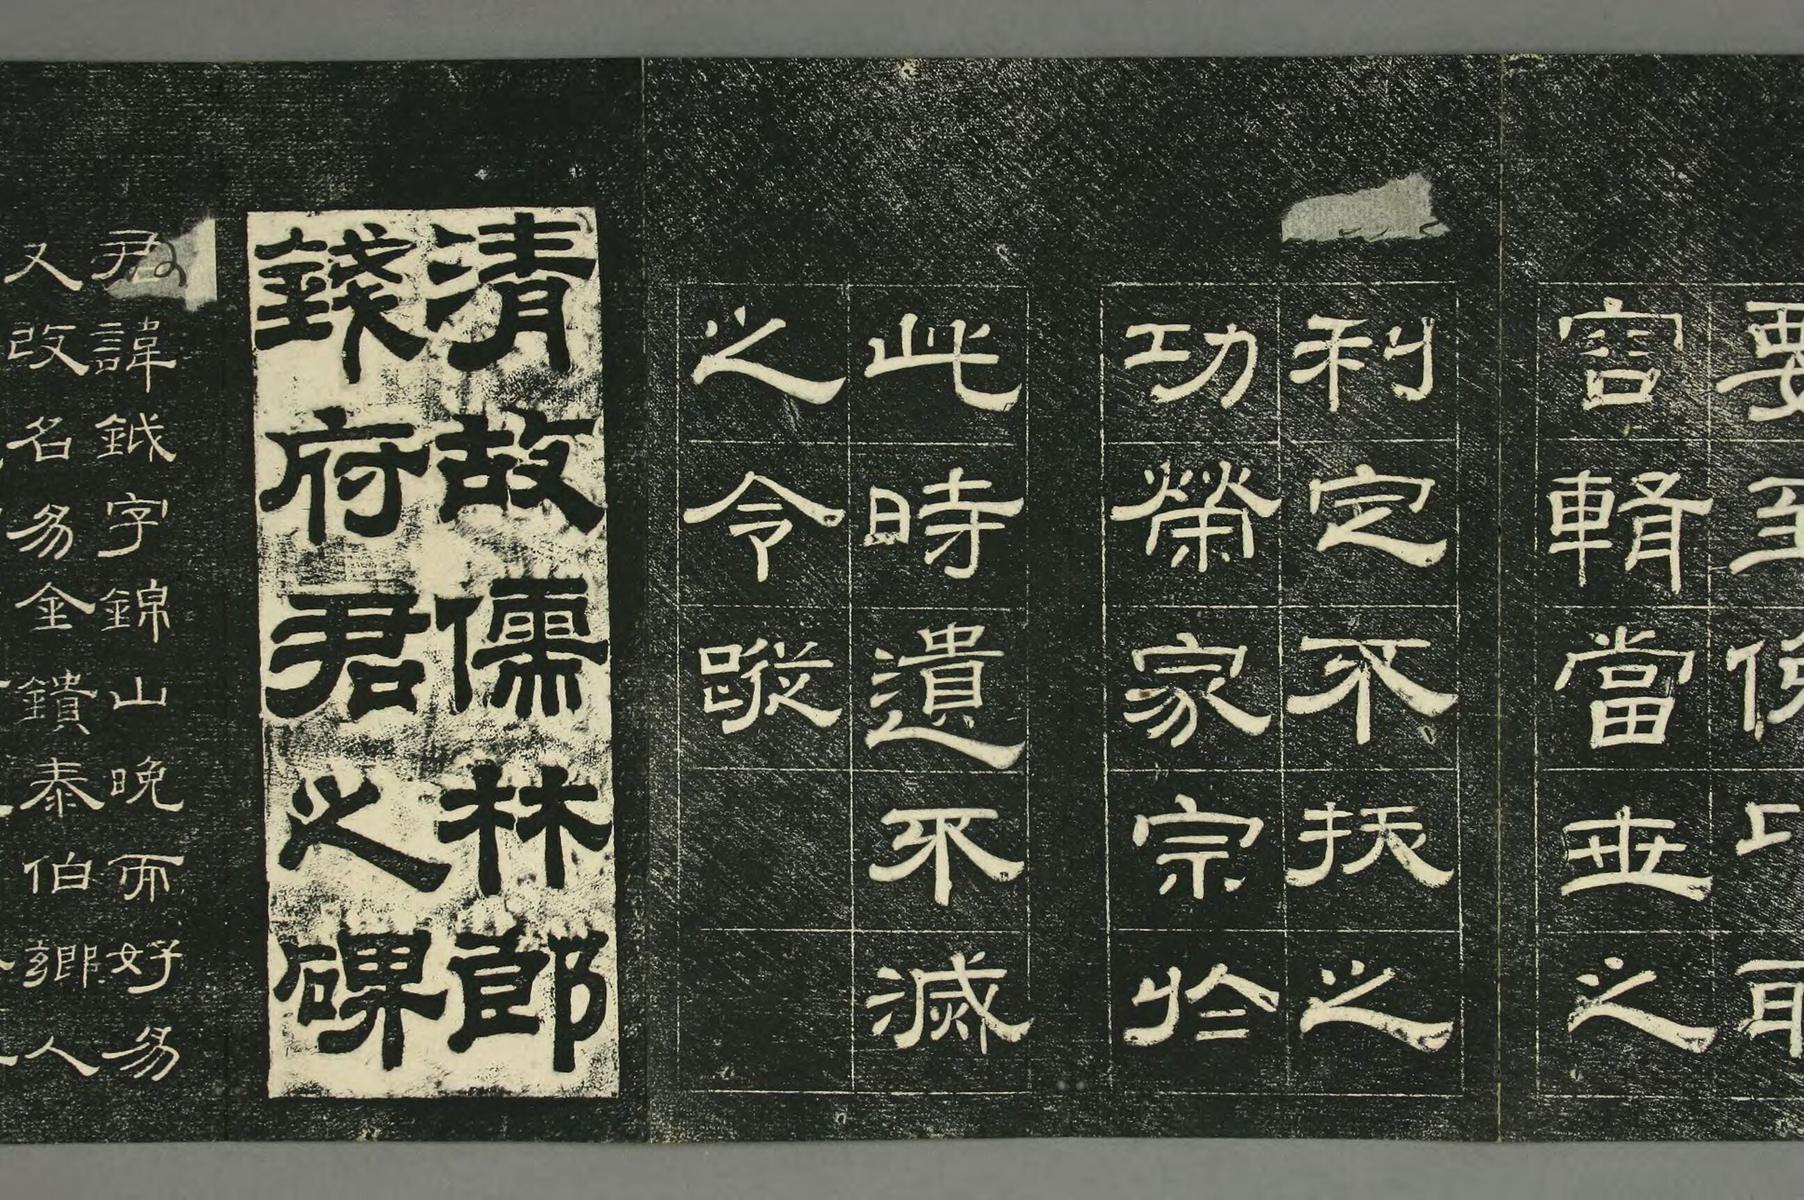 要至
容輯當世之
利定不拔之
功榮家宗於
此時遺不滅
之令蹤
清故儒林郎
錢府君之碑
君諱鉞字錦山晚而好易
又改名易金鐀泰伯鄉人